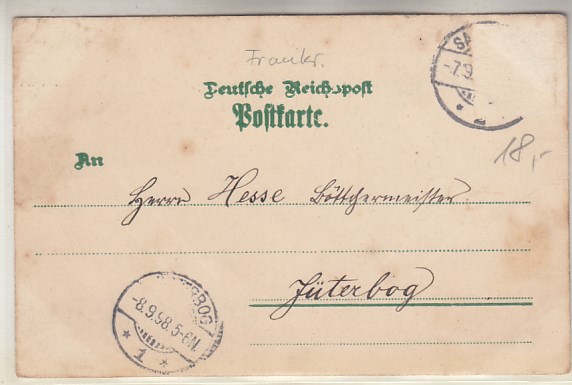 Frankr.
Deutsche Reichspost
Postkarte.
SA
-7.9.
* 2
18,-
An
Herrn Hesse Böttchermeister
Jüterbog
RBOG
-8.9.98.5-6N.
* 1 *